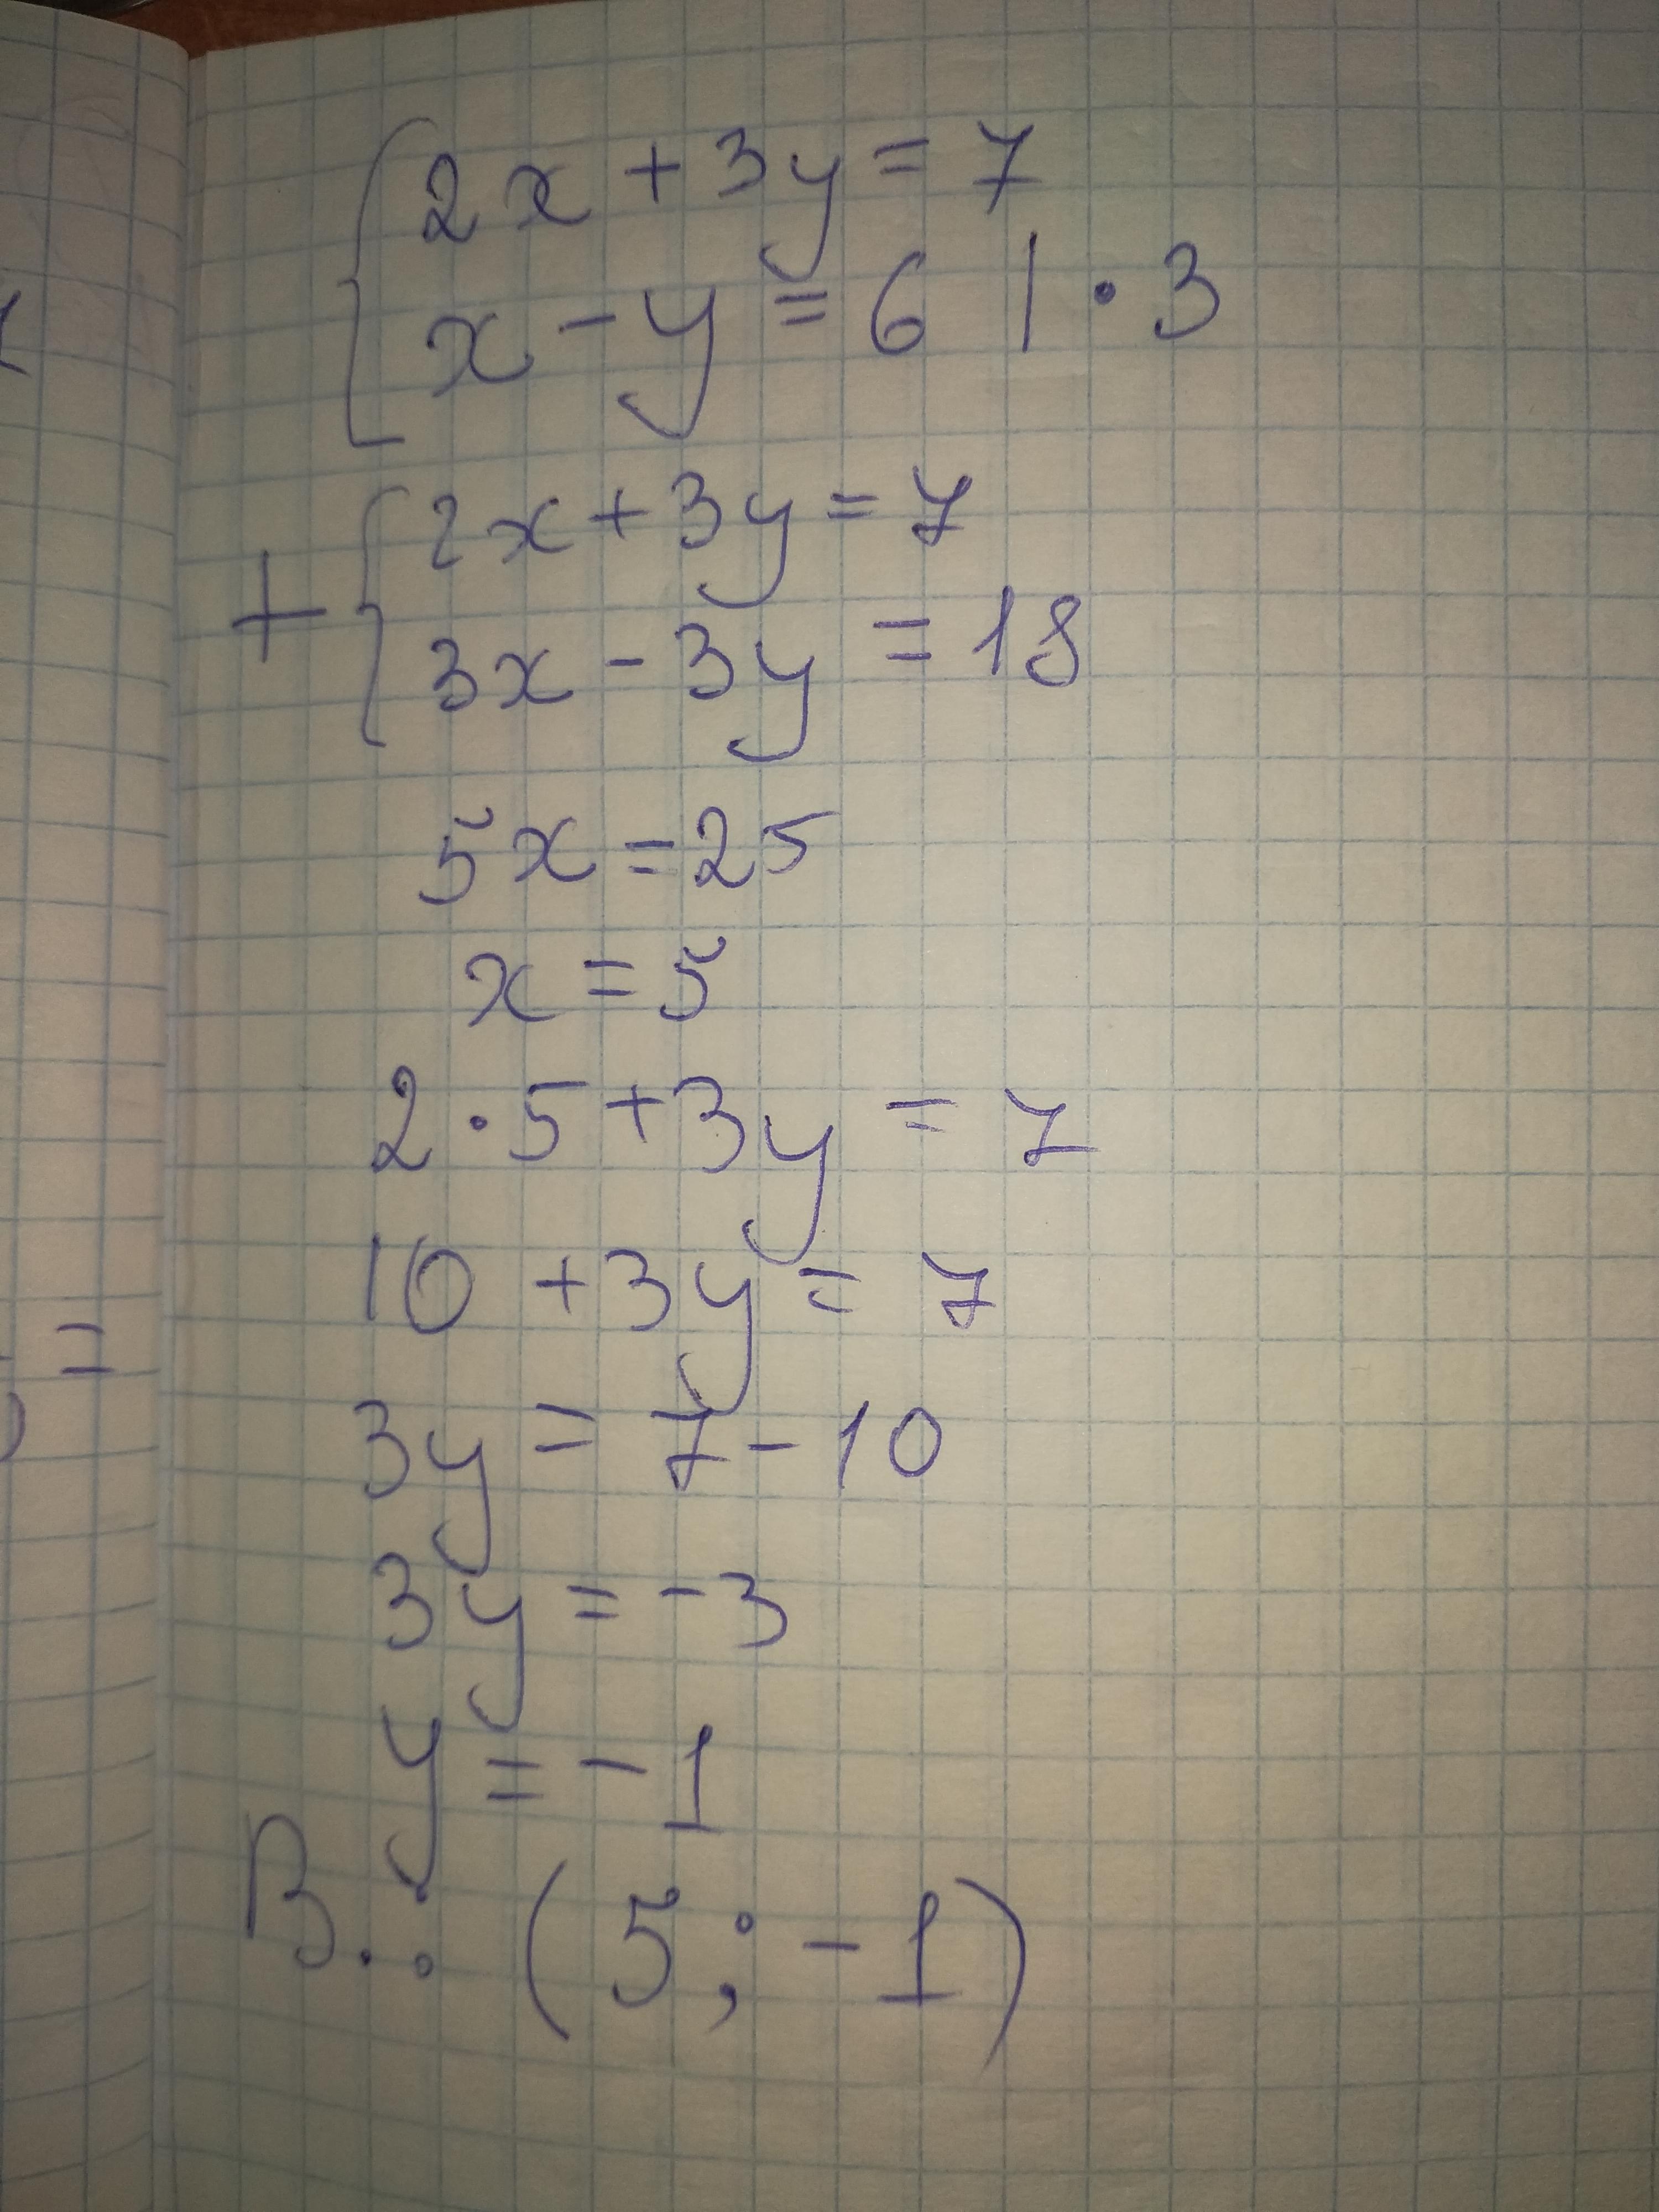 2x + 3y = 7
x - y = 6 | · 3
+ 2x + 3y = 7
3x - 3y = 18
5x = 25
x = 5
2 · 5 + 3y = 7
10 + 3y = 7
3y = 7 - 10
3y = -3
y = -1
В.: (5; -1)
=